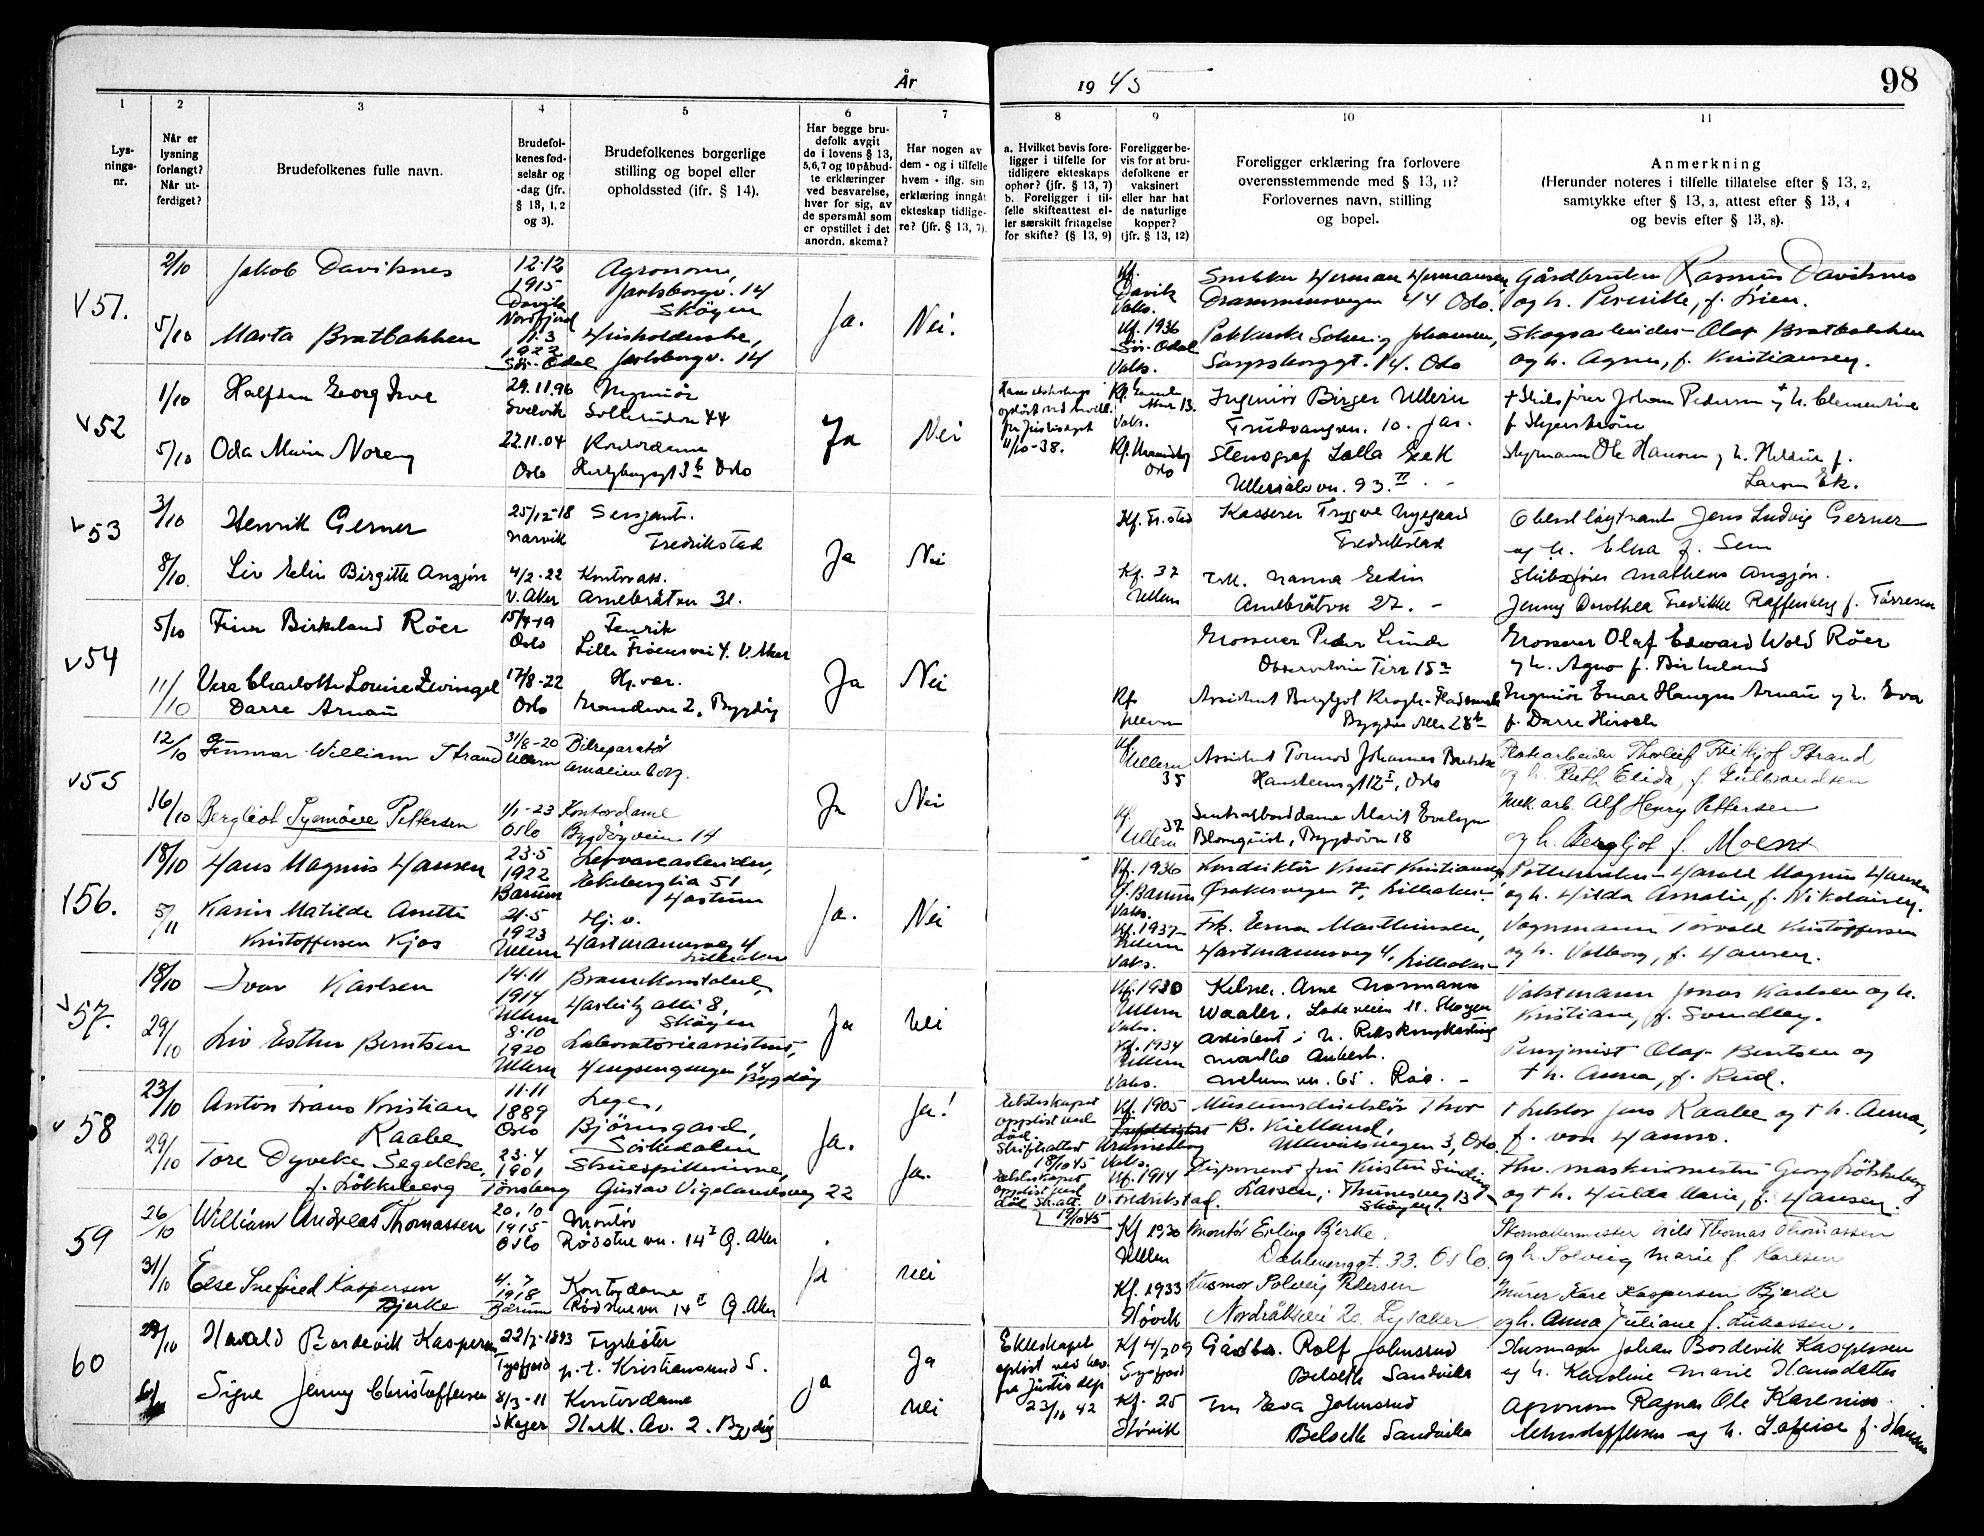 År 1945
98
1
2
3
4
5
6
7
8
9
10
11
Lys-
nings-
nr.
Når er
lysning
forlangt?
Når ut-
ferdiget?
Brudefolkenes fulle navn.
Brudefol-
kenes fød-
selsår og
-dag (jfr.
§ 13, 1, 2
og 3).
Brudefolkenes borgerlige
stilling og bopel eller
opholdssted (ifr. § 14).
Har begge bru-
defolk avgit
de i lovens § 13,
5,6,7 og 10 påbud-
te erklæringer
ved besvarelse,
hver for sig, av
de spørsmål som
er opstillet i det
anordn. skema?
Har nogen av
dem - og i tilfelle
hvem - iflg. sin
erklæring inngåt
ekteskap tidlige-
re? (jfr. § 13, 7).
a. Hvilket bevis fore-
ligger i tilfelle for
tidligere ekteskaps
ophør? (jfr. § 13, 7)
b. Foreligger i til-
felle skifteattest el-
ler særskilt fritagelse
for skifte? (§ 13, 9)
Foreligger be-
vis for at bru-
defolkene er
vaksinert
eller har hat
de naturlige
kopper?
(jfr. § 13, 12)
Foreligger erklæring fra forlovere
overensstemmende med § 13, 11?
Forlovernes navn, stilling
og bopel.
Anmerkning
(Herunder noteres i tilfelle tillatelse efter § 13, 2,
samtykke efter § 13, 3, attest efter § 13, 4
og bevis efter § 13, 8).
V 51.
2/10 Jakob Daviknes
12.12
1915
Davik
Nordfjord
Agronom,
Jarlsborgv. 14
Skøyen
5/10 Marta Bratbakken
11.3
1922
Sør-Odal
Husholderske,
Jarlsborgv. 14
Ja. Nei.
Kf.
Davik
Vaks.
Snekker Herman Hermansen
Drammensvegen 44 Oslo.
Gårdbruker Rasmus Daviknes
og h. Pernille, f.
Kf. 1936
Sør-Odal
Vaks.
Solveig Johansen,
Sarpsborggt. 14. Oslo
Skogsarbeider Olaf Bratbakken
og h. Agnes, f. Kristiansen.
V 52
1/10 Halfdan Georg
29.11.96
Svelvik
44
5/10 Oda Marie Noreng
22.11.04
Oslo
Kontordame
Oslo
Ja Nei
11/10-38.
Vaks.
Ingeniør Birger Ullern
Fridvangvn. 10. Jar.
Johan Pedersen og h. Clementine
Oslo
Stenograf Lalla Eek
Ullevålsvn. 93. II
Styrmann Ole Hansen og h. f.
Larsen Ek.
V 53
3/10 Henrik Gerner
25/12-18
Narvik
Sersjant.
Fredrikstad
8/10. Liv Elin Birgitte Angjøn
4/2-22
V. Aker
Kontorass.
Arnebråtvn 31.
Ja Nei
Kf. Fr.stad
Kasserer Trygve Nygaard
Fredrikstad
Oberstløytnant Jens Ludvig Gerner
og h. Elna f. Sem
Kf. 37
Ullern
Frk. Nanna Hedin
Arnebråtvn 27. -
Skibsfører Mathens Angjøn.
Jenny Dorothea Fredrikke Raffenberg f. Tørresen
V 54
5/10 Finn Birkeland Röer
15/4-19
Oslo
Fenrik
Lille Frøensvei 4. V. Aker
11/10 Vera Charlotte Louise Zwingel
Darre Arnau
17/8-22
Oslo
Hj. vær.
2, Bygdøy
Ja Nei
Grosserer Peder Lunde
Observatorie Terr 15
Grosserer Olaf Edward Wold Röer
og h. Agno f. Birkeland
Kf
Ullern
Assistent Bergljot Krogh-
Bygdø Alle 28b
Ingeniør Einar Haugen Arnau og h. Eva
f. Darre Hirsch
V 55
12/10 Gunnar William Strand
31/8-20
Ullern
Bilreparatør
Amalienborg.
16/10 Bergliot Synnöve Pettersen
1/1-23
Oslo
Kontordame
Bygdøyveien 14
Ja Nei
Kf
Ullern
35
Assistent Tormod Johannes
12 I, Oslo
Thorleif Frithjof Strand
og h. Ruth Elida, f. Gulbrandsen
Kf.
Ullern 37
Sentralborddame Marit Evelyn
Blomquist, Bygdövn 18
Mek. arb. Alf Henry Pettersen
og h. Bergljot f. Moen
V 56.
18/10 Hans Magnus Hansen
23.5
1922
Bærum
Lervarearbeider,
Ekeberglia 51
5/11 Karin Matilde Anette
Kristoffersen Kjos
21.5
1923
Ullern
Hj. v.
Hartmannsveg 4
Lilleaker
Ja. Nei
Kf. 1936
Ö. Bærum
Vaks.
Konduktör Knut Kristiansen
Øraker vegen 7, Lilleaker.
Pottemaker Harald Magnus Hansen
og h. Hilda Amalie, f. Nikolaisen.
Kf. 1937
Ullern
Vaks.
Frk. Erna Marthinsen,
Hartmannsveg 4, Lilleaker
Vognmann Torvald Kristoffersen
og h. Valborg, f. Hansen.
V 57.
18/10 Ivar Karlsen
14.11
1914
Ullern
Brannkonstabel,
Harbitz alle 8,
Skøyen
29/10 Liv Esther Berntsen
8.10
1920
Ullern
Laboratorieassistent,
Hengsengvegen 14
Bygdøy
Ja Nei
Kf. 1930
Ullern
Vaks.
Kelner. Arne Normann
Waaler. 11. Skøyen
Vaktmann Jonas Karlsen og h.
Kristiane, f. Svendby.
Kf. 1934
Ullern
Vaks.
assistent i
Martha
65. Röa. -
Pensjonist Olaf Berntsen og
+ h. Anna, f. Rud.
V 58
23/10 Anton Frans Kristian
Raabe
11.11
1889
Oslo
Lege,
Björnsgard,
Sörkedalen
29/10 Tore Dyveke Segelcke,
f. Lökkeberg
23.4
1901
Tønsberg
Skuespillerinne,
Gustav Vigelandsveg 22
Ja. Ja! Ja.
Ekteskapet
oppløst ved
död.
Skifteattest
18/10 45
Kf. 1905
Uranienborg
Vaks.
Museumsdirektør Thor
B. Kielland,
Ullevålsvegen 3, Oslo.
+ Lektor Jens Raabe og + h. Anna,
f. von Hanno.
Ekteskapet
oppløst ved
död. Sk.att.
19/10 45
Kf. 1914
V. Fredrikstad.
Disponent fru Kirsten Sinding
Larssen, Thunesveg 13
Skøyen.
Fhv. maskinmester Georg Lökkeberg
og + h. Hulda Marie, f. Hansen.
59
26/10 William Andreas Thomassen
20.10
1915
Oslo
Montör
Rödstuevn. 14 I Ö. Aker
31/10 Else Snefried Kaspersen
Bjerke
4.7
1918
Bærum
Kontordame
Rödstuevn 14 I Ö. Aker
Ja Nei
Kf 1930
Ullern
Montör Erling Bjerke.
Dahlenenggt. 33. Oslo.
Skomakermester Nils Thomas Thomassen
og h. Solveig Marie f. Karlsen
Kf. 1933
Høvik
Husmor Solveig Pedersen
20. Lysaker
Murer Kare Kaspersen Bjerke
og h. Anna Juliane f. Lukassen.
60
29/10 Harald Bordevik Kaspersen
22/7-1893
Tysfjord
Fyrbøter
p.t. Kristiansund S.
Signe Jenny Christoffersen
8/3-11
Skoger
Kontordame
H.K. Av. 2. Bygdøy
Ja Ja Nei
Ekteskapet
opløst ved bev.
fra Justisdep
23/10 42
Kf 4/7 09
Tysfjord
Gårdbr. Rolf Johnsrud
Belseth Sandvika
Husmann Johan Bordevik Kaspersen
og h. Karoline Marie Hansdatter
Kf. 25
Høvik
Fru Eva Johnsrud
Belseth Sandvika
Agronom Ragnar Ole Karenius
Christoffersen og h. Lovise f. Hansen